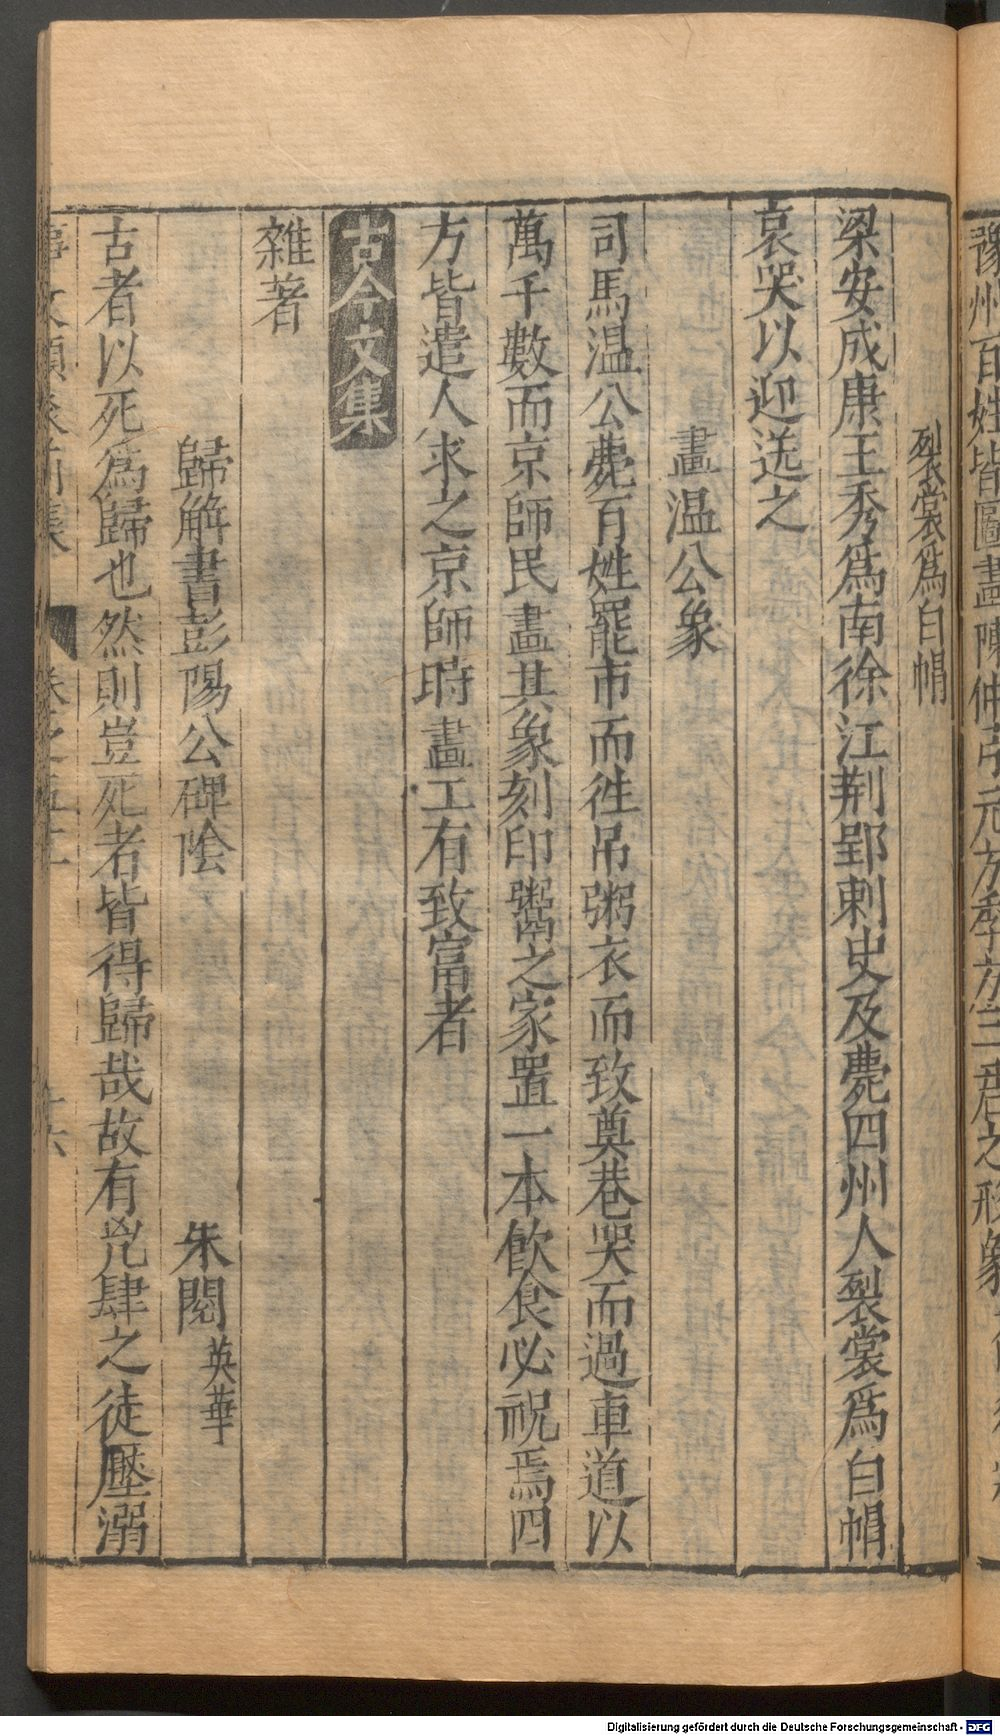 豫州百姓皆圖畫陳仲弓元方季方三君之形象
裂裳爲白㡌
梁安成康王秀爲南徐江荆郢刺史及薨四州人裂裳爲白㡌
哀哭以迎送之
畫温公象
司馬温公薨百姓罷市而徃吊粥衣而致奠巷哭而過車道以
萬千數而京師民畫其象刻印鬻之家置一本飮食必祝焉四
方皆遣人求之京師時畫工有致富者
古今文集
雜著
歸解書彭陽公碑陰 朱閱 英華
古者以死爲歸也然則豈死者皆得歸哉故有兇肆之徒壓溺
事文類聚前集 卷之五十 十六
Digitalisierung gefördert durch die Deutsche Forschungsgemeinschaft - DFG